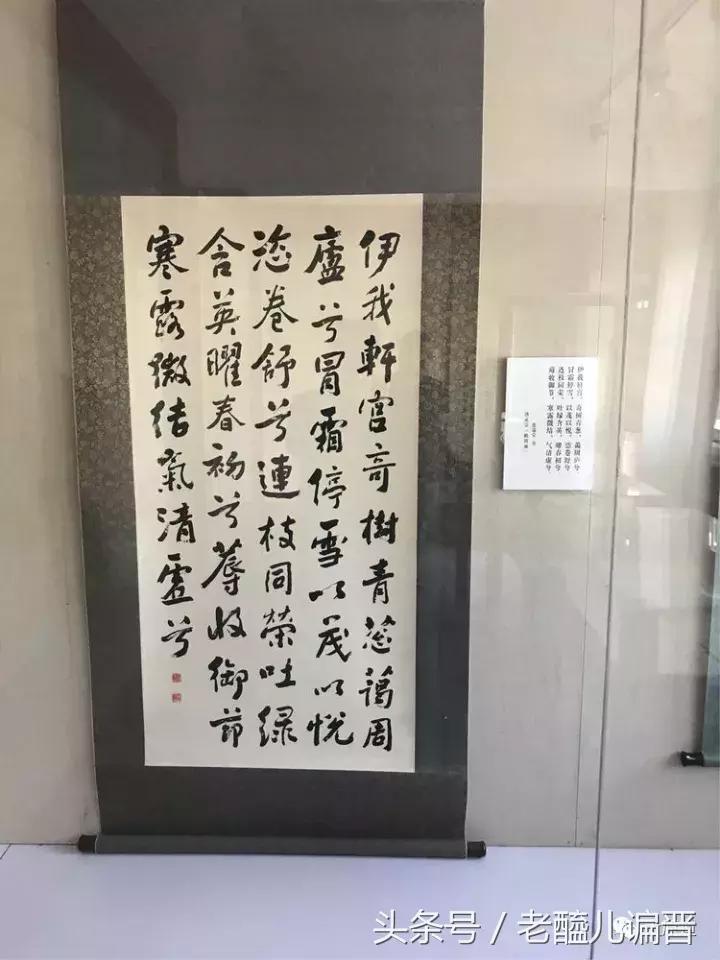 伊我軒宮奇樹青蔥藹周
廬兮冒霜停雪以茂以悅
恣卷舒兮連枝同榮吐綠
含英曜春初兮蓐收御節
寒露微結氣清虛兮
头条号 / 老醯儿谝晋